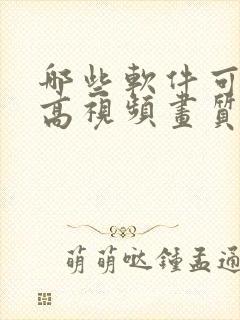 哪些軟件可
高視頻畫質
萌萌哒鍾孟通